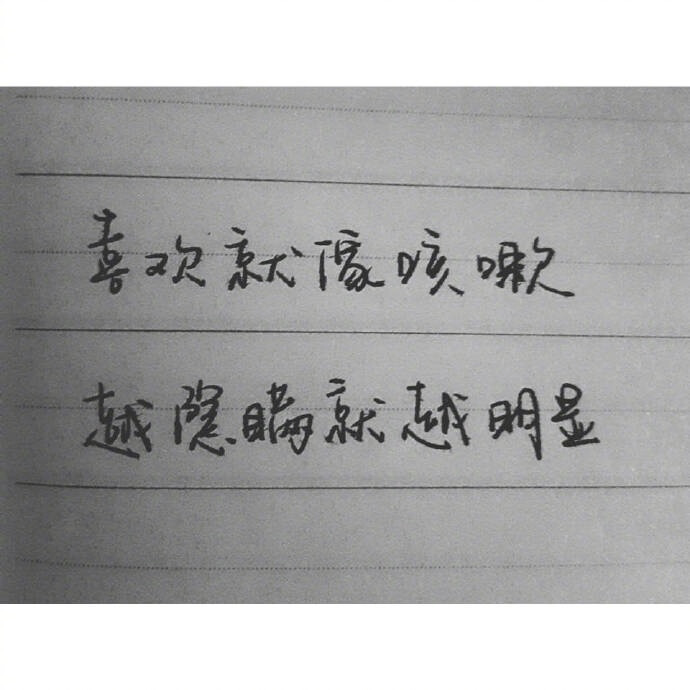 喜欢就像咳嗽
越隐瞒就越明显